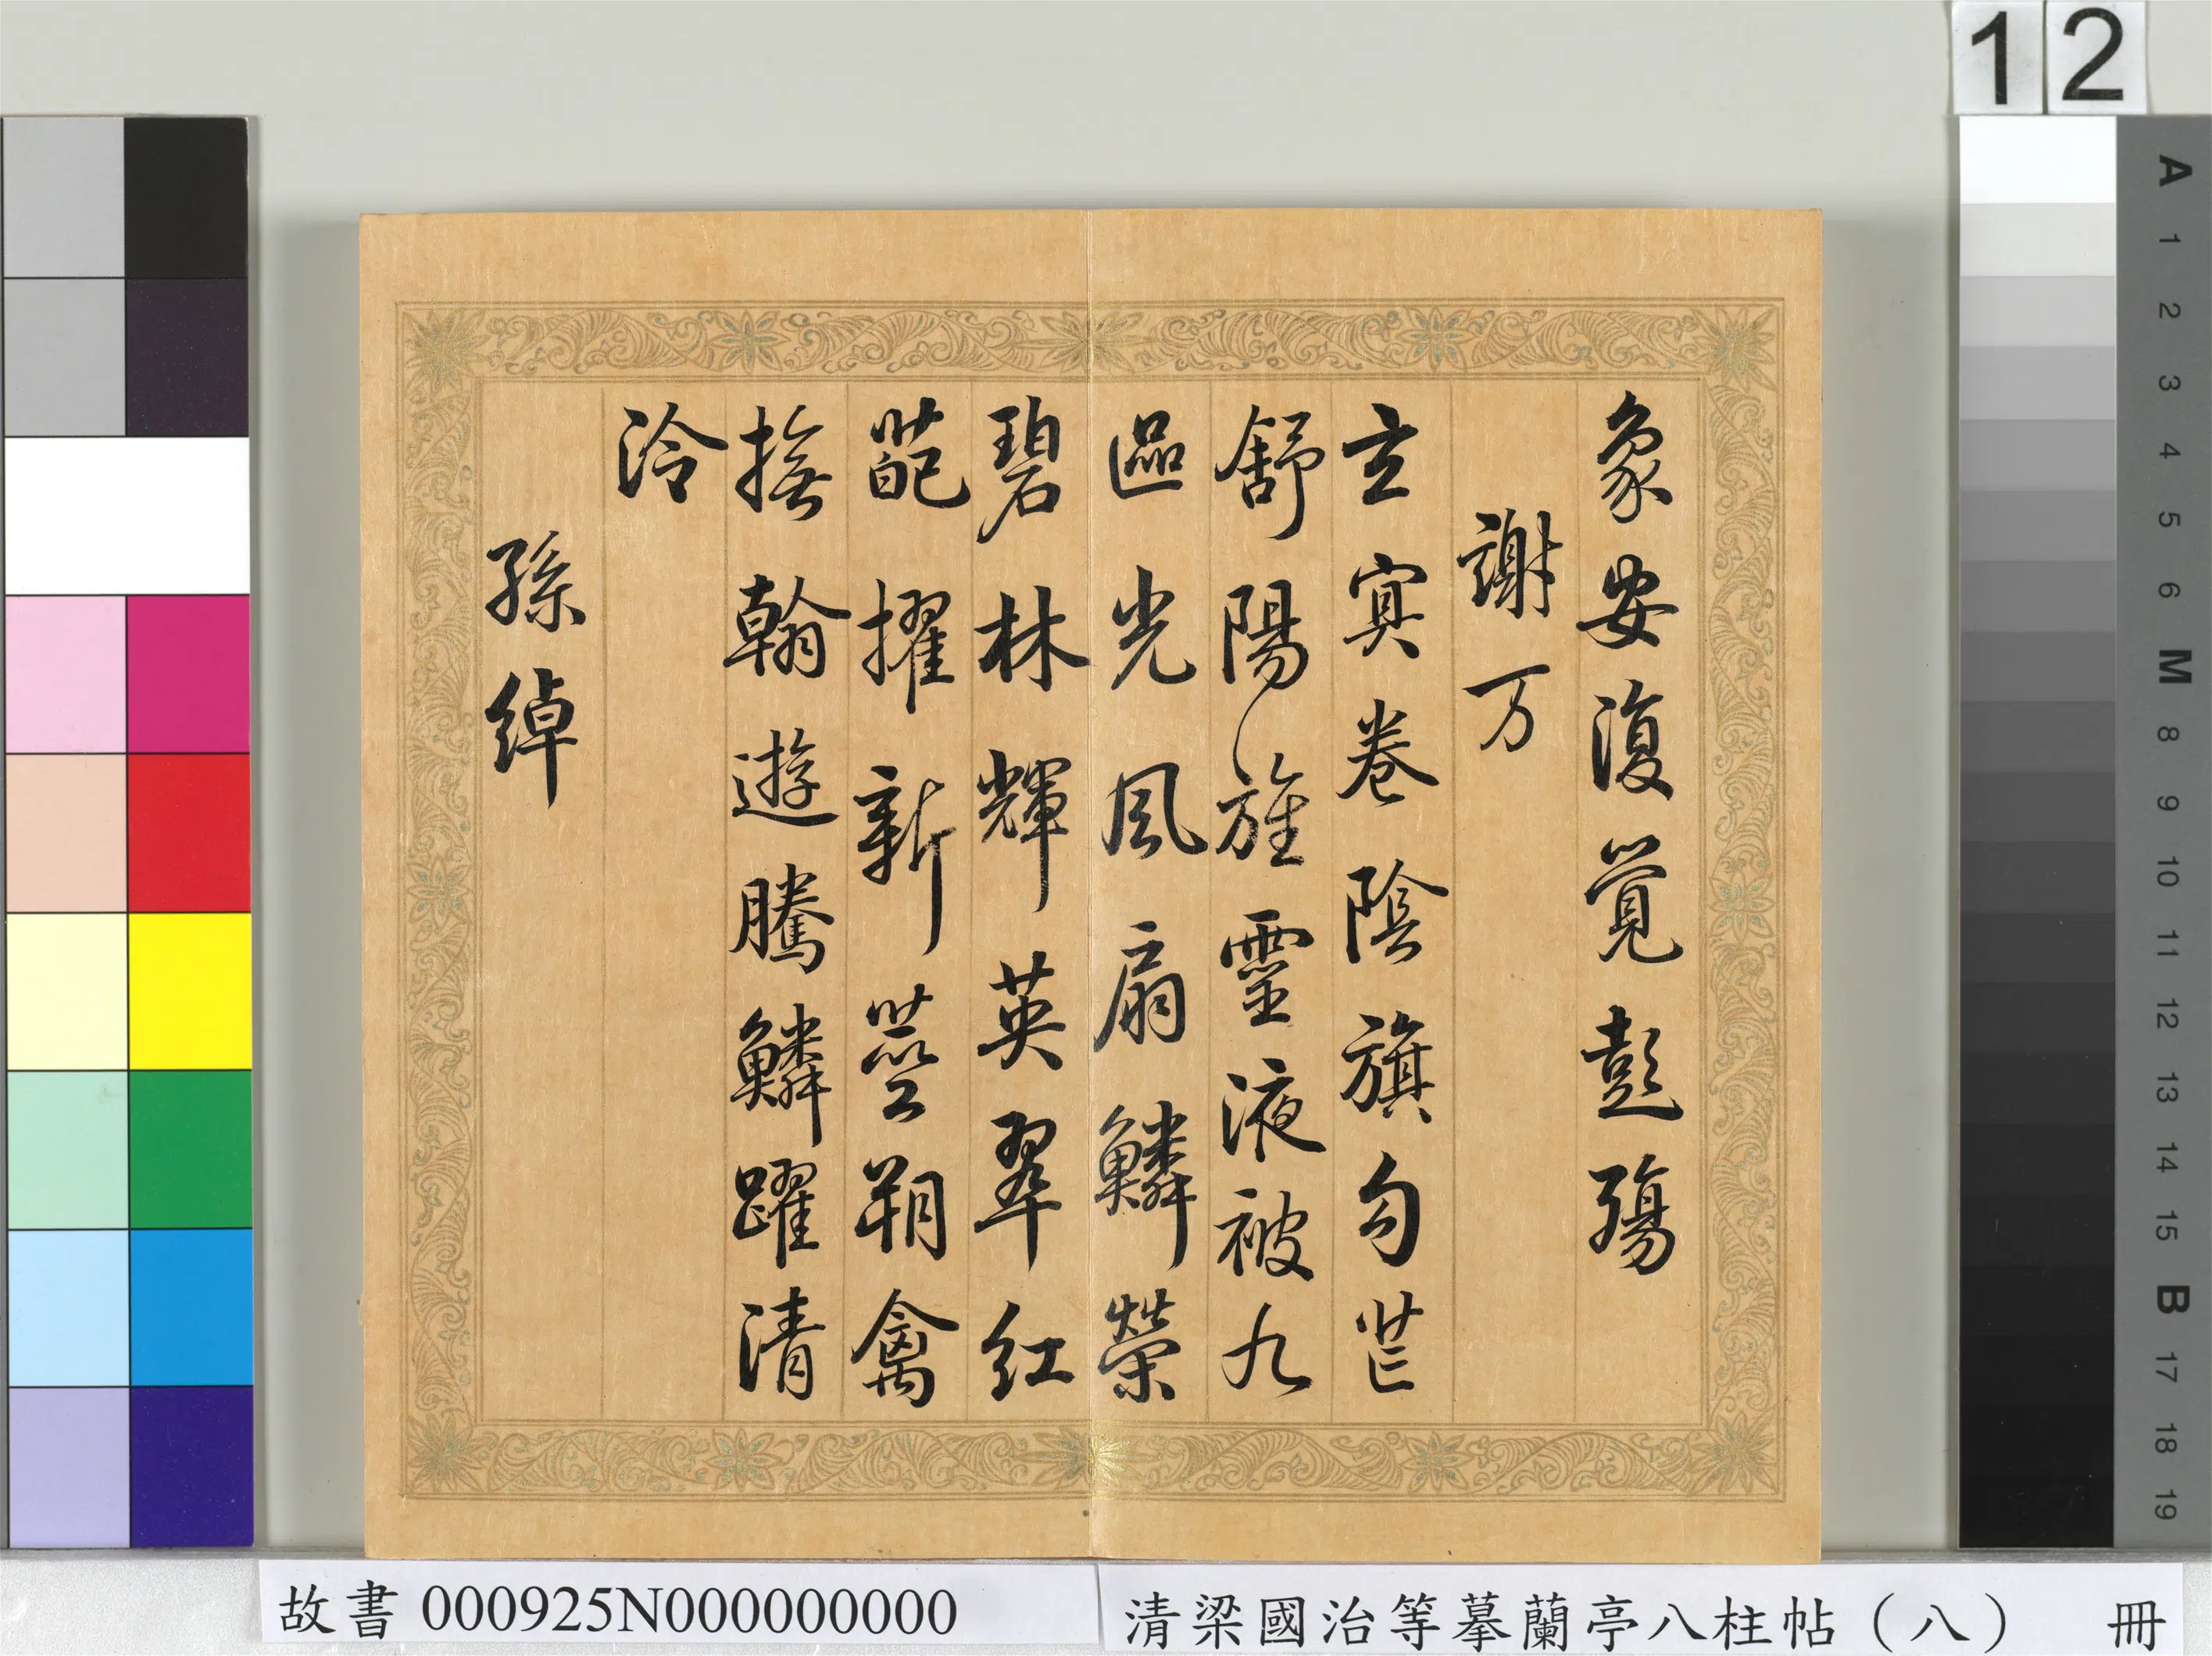 象安復覺彭殤
謝万
玄冥卷陰旗勾芒
舒陽旌靈液被九
區光風扇鱗榮
碧林輝英翠紅
葩擢新莖翔禽
撫翰遊騰鱗躍清
泠
孫綽
12
A
1
2
3
4
5
6
M
8
9
10
11
12
13
14
15
B
17
18
19
故書 000925N000000000
清梁國治等摹蘭亭八柱帖（八） 冊